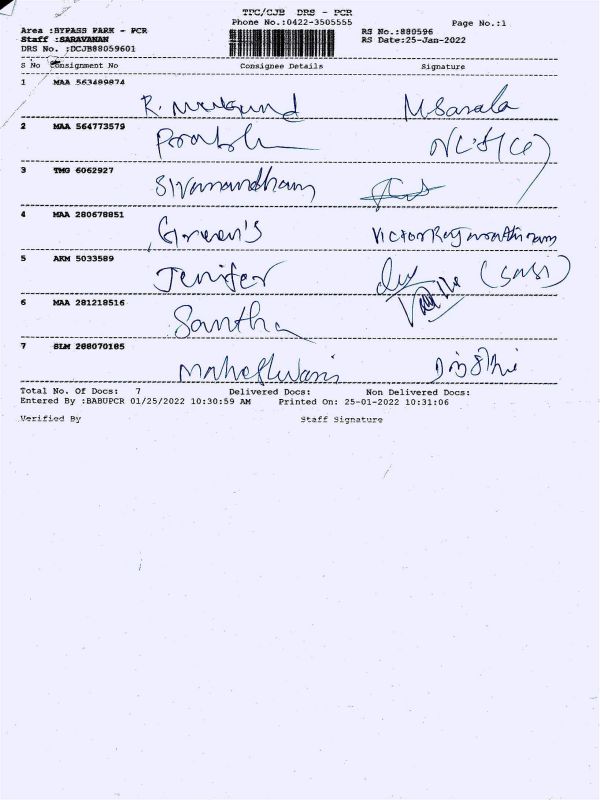 TPC/CJB DRS - PCR
Phone No.:0422-3505555 Page No.:1
Area :BYPASS PARK - PCR RS No.:880596
Staff :SARAVANAN RS Date:25-Jan-2022
DRS No. :DCJB88059601
S No Consignment No Consignee Details Signature
1 MAA 563489874
R. Mukund M Sarala
2 MAA 564773579
3 TMG 6062927
Sivanandham
4 MAA 280678851
Green's Victor Raj
5 AKM 5033589
Jenifer
6 MAA 281218516
Santha
7 SLM 288070185
Maheshwari
Total No. Of Docs: 7 Delivered Docs: Non Delivered Docs:
Entered By :BABUPCR 01/25/2022 10:30:59 AM Printed On: 25-01-2022 10:31:06
Verified By Staff Signature